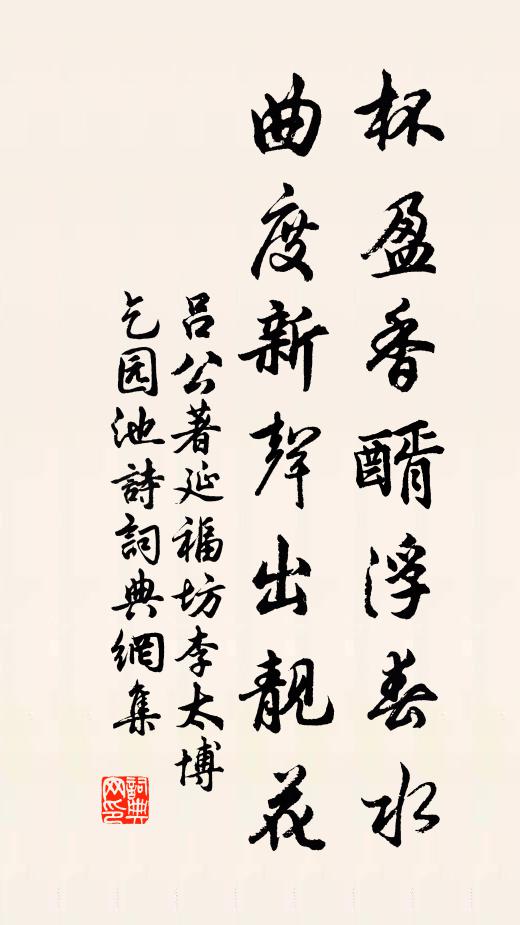 杯盈香醑浮春水
曲度新聲出靚花
吕公著延福坊李太博
乞园池詩詞典網集
詞典網印